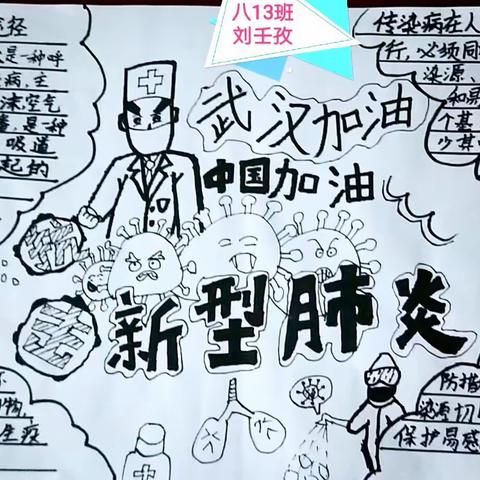 八13班
刘壬孜
是一种呼
病,主
沫空气
是一种
吸道
起的
传染病在人
行,必须同
染源、
和易
个基
少其中
武汉加油
中国加油
新型肺炎
物,
生疫
防措
染源切
保护易感